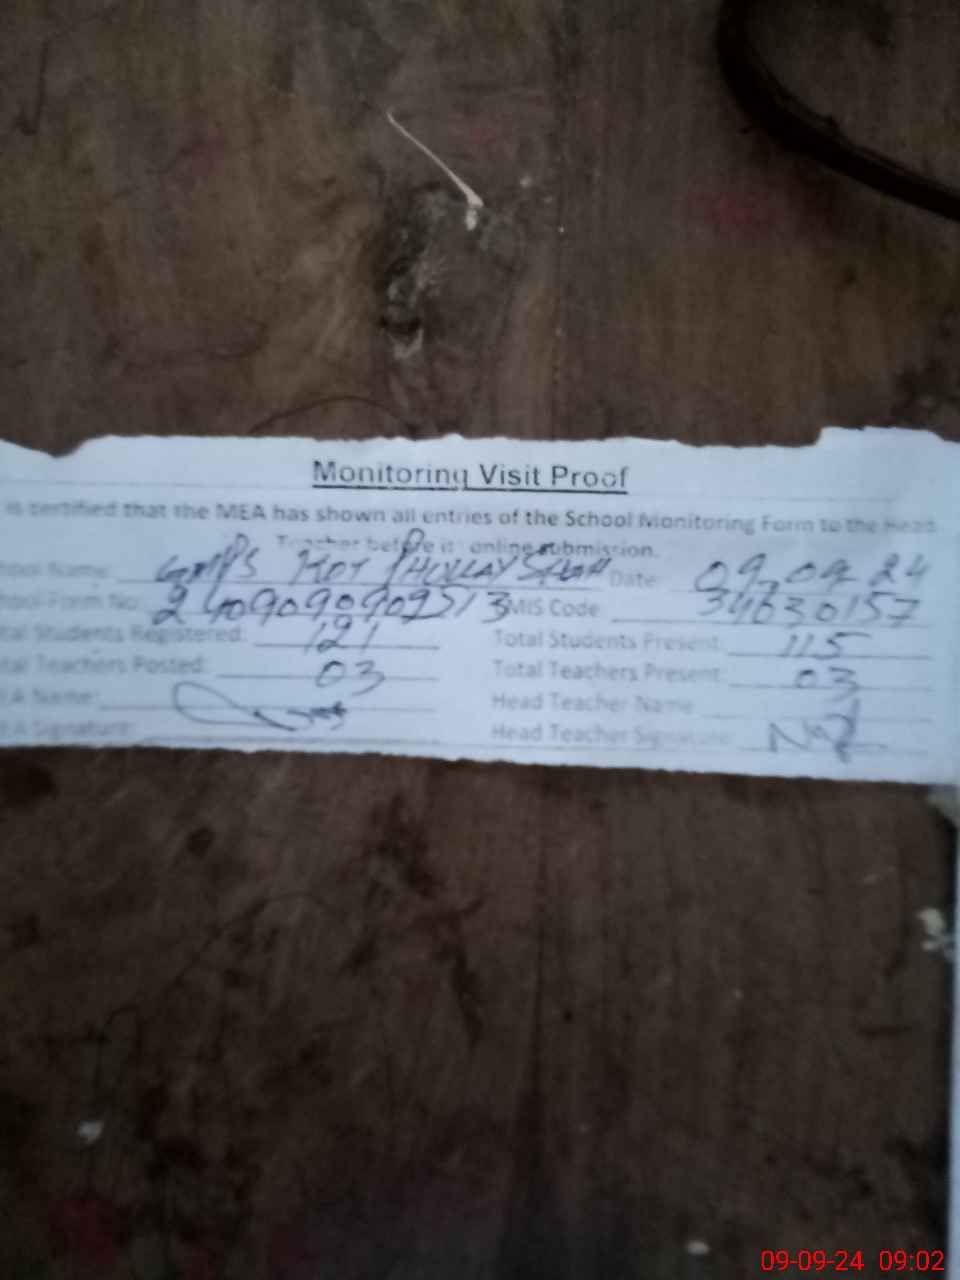 Monitoring Visit Proof
is certified that the MEA has shown all entries of the School Monitoring Form to the Head
Teacher before it online submission.
hool Name: GMPS KOT PHULLAY SHAH Date: 09.09.24
hool Form No: MIS Code: 34630157
tal Students Registered: 121 Total Students Present: 115
tal Teachers Posted: 03 Total Teachers Present: 03
EA Name: Head Teacher Name
EA Signature: Head Teacher Signature:
09-09-24 09:02